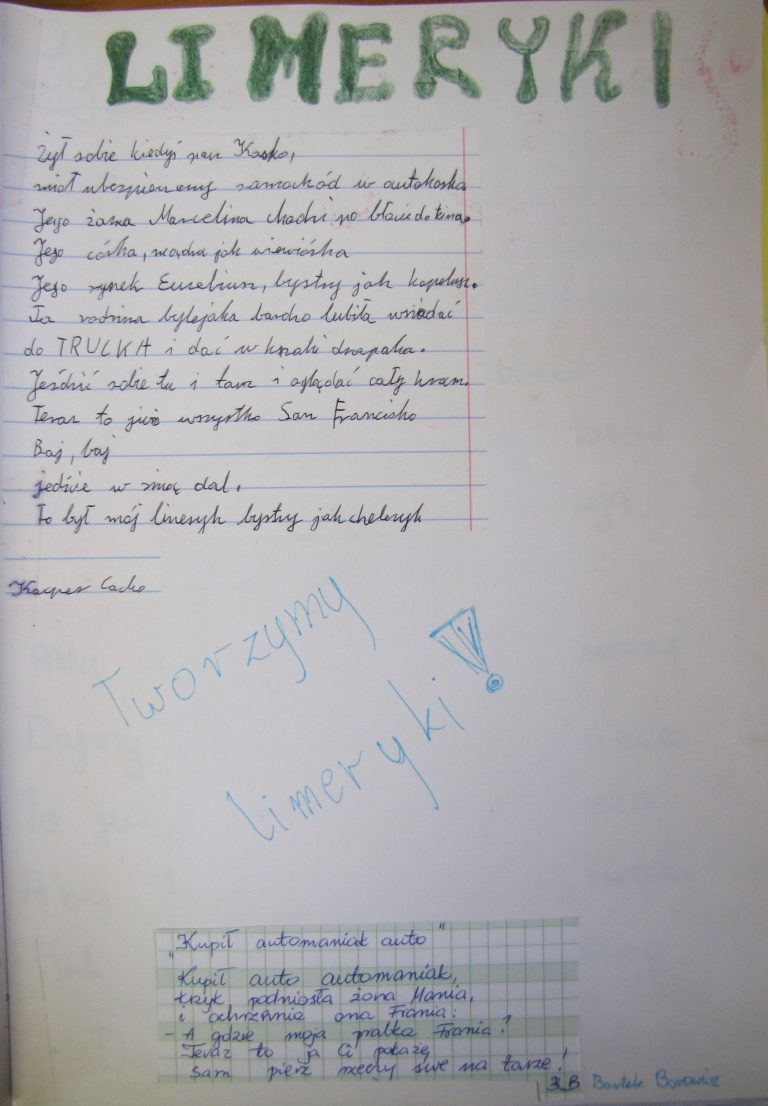 LIMERYKI
Żył sobie kiedyś pan Kasko,
miał ubezpieczony samochód w autokaska
Jego żona Marcelina chodzi po bławie do kina.
Jego córka, mądra jak wiewiórka
Jego synek Euzebiusz, bystry jak kapelusz.
Ta rodzina bylejaka bardzo lubiła wsiadać
do TRUCKA i dać w krzaki drapaka.
Jeździć sobie tu i tam i oglądać cały kram.
Teraz to już wszystko San Francisko
Baj, baj
jedzie w siną dal.
To był mój limeryk bystry jak choleryk
Kacper
Tworzymy
limeryki!
"Kupił automaniak auto"
Kupił auto automaniak,
krzyk podniosła żona Mania,
i ochrzania ona Frania:
- A gdzie moja pralka Frania?
Teraz to ja Ci pokażę
sam pierz rzeczy swe na tarze!
3 B Bartek Borowicz